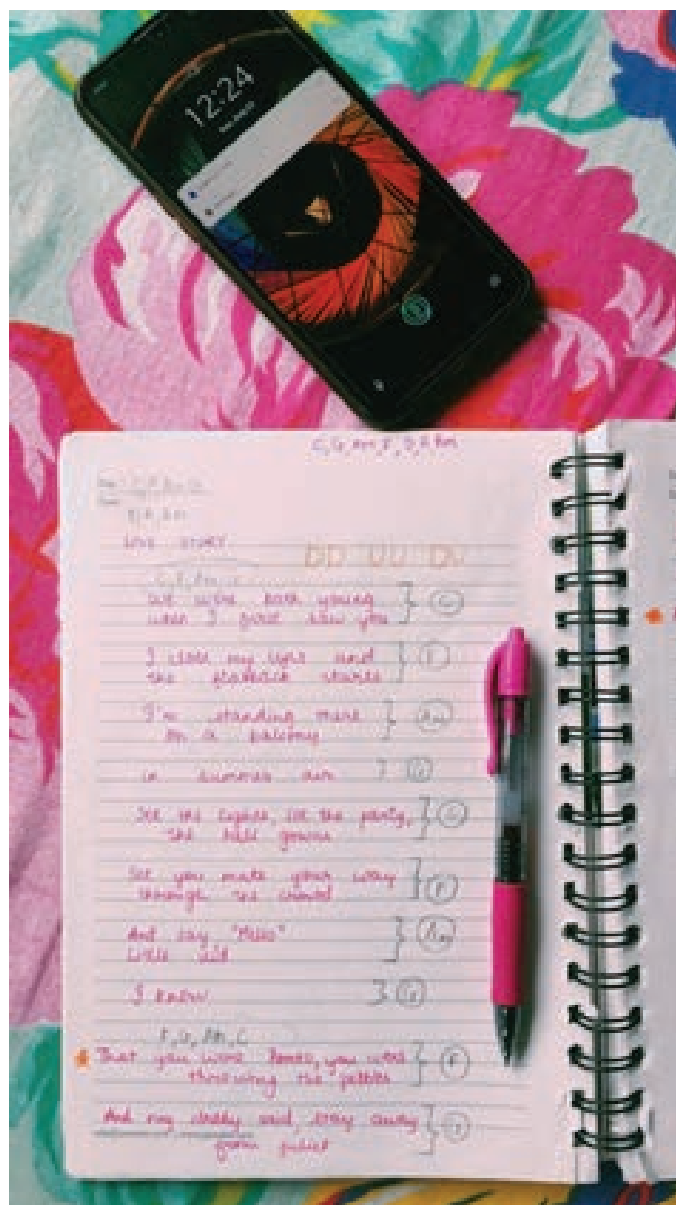 12:24
C, G, Am, F, D, A, Bm
LOVE STORY
DD UU DU
we were both young
when I first saw you
C
I close my eyes and
the flashback starts
F
I'm standing there
on a balcony
Am
in summer air
G
See the lights, see the party,
the ball gowns
C
See you make your way
through the crowd
F
And say "Hello"
Little did
Am
I knew
G
F, G, Am, C
That you were Romeo, you were
throwing the pebbles
F
And my daddy said, stay away
from juliet